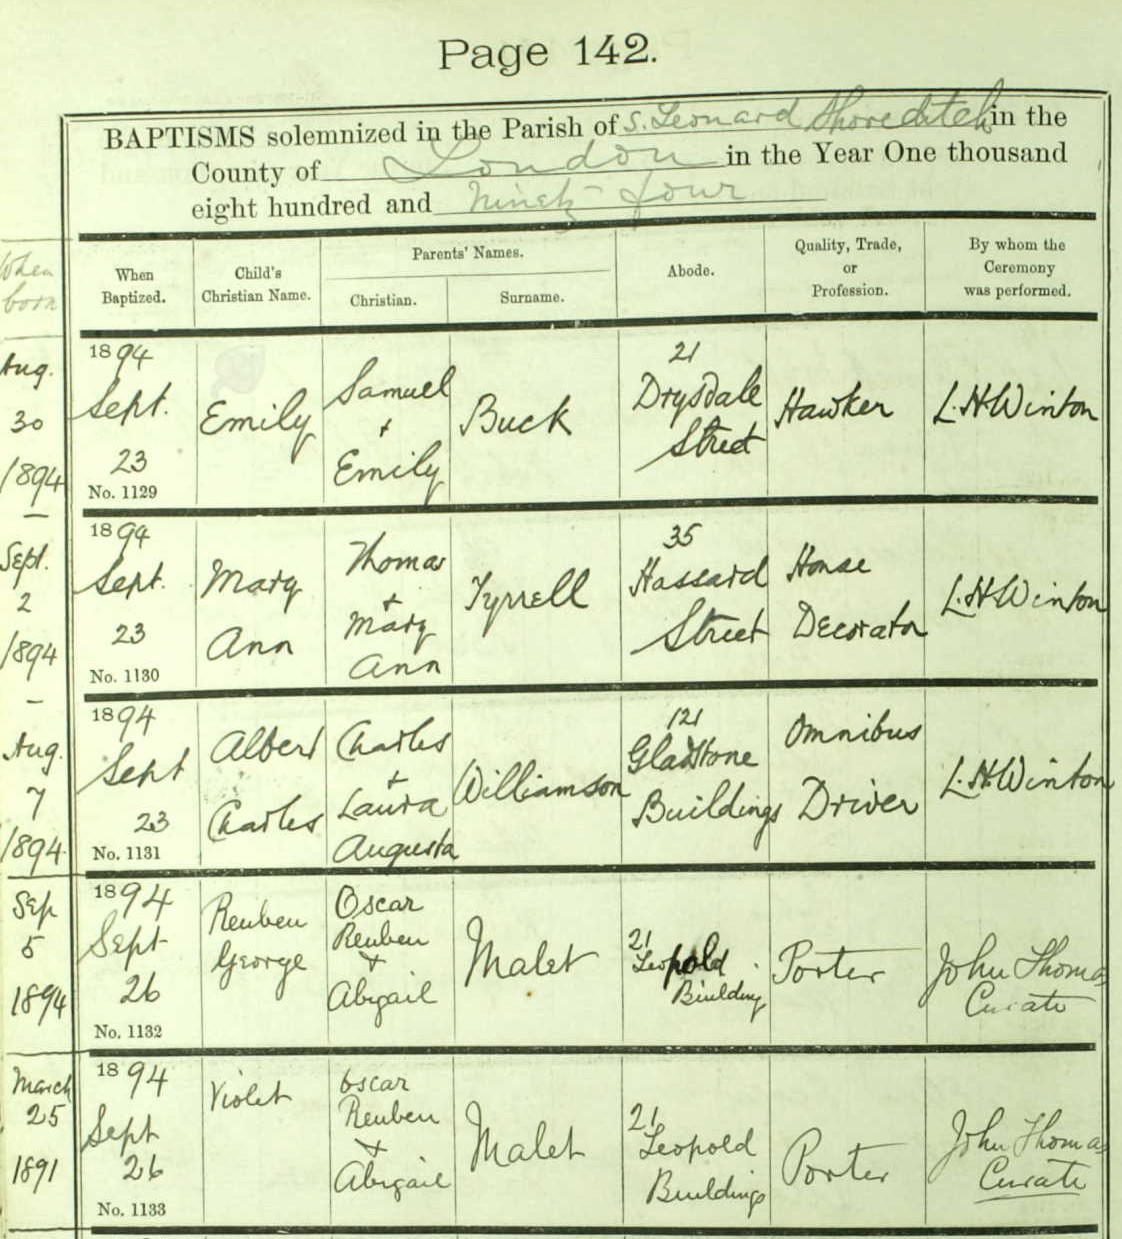 Page 142.
BAPTISMS solemnized in the Parish of S. Leonard Shoreditch in the
County of London in the Year One thousand
eight hundred and Ninety four
When born
When Baptized.
Child's Christian Name.
Parents' Names.
Christian.
Surname.
Abode.
Quality, Trade, or Profession.
By whom the Ceremony was performed.
Aug.
30
1894
1894
Sept.
23
No. 1129
Emily
Samuel
+
Emily
Buck
21
Drysdale
Street
Hawker
L.H.Winton
Sept.
2
1894
1894
Sept.
23
No. 1130
Mary
Ann
Thomas
+
Mary
Ann
Tyrrell
35
Hassard
Street
House
Decorator
L.H.Winton
Aug.
7
1894
1894
Sept
23
No. 1131
Albert
Charles
Charles
+
Laura
Augusta
Williamson
121
Gladstone
Buildings
Omnibus
Driver
L.H.Winton
Sep
5
1894
1894
Sept
26
No. 1132
Reuben
George
Oscar
Reuben
+
Abigail
Malet
21
Leopold
Building
Porter
John Thomas
Curate
March
25
1891
1894
Sept
26
No. 1133
Violet
Oscar
Reuben
+
Abigail
Malet
21
Leopold
Buildings
Porter
John Thomas
Curate